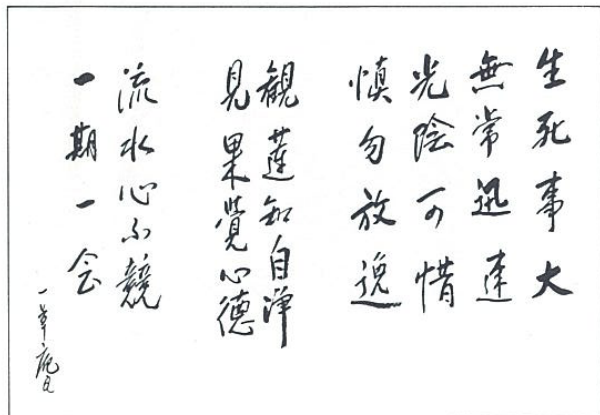 生死事大
無常迅速
光陰可惜
慎勿放逸
観蓮知自浄
見果覚心徳
流水心不競
一期一会